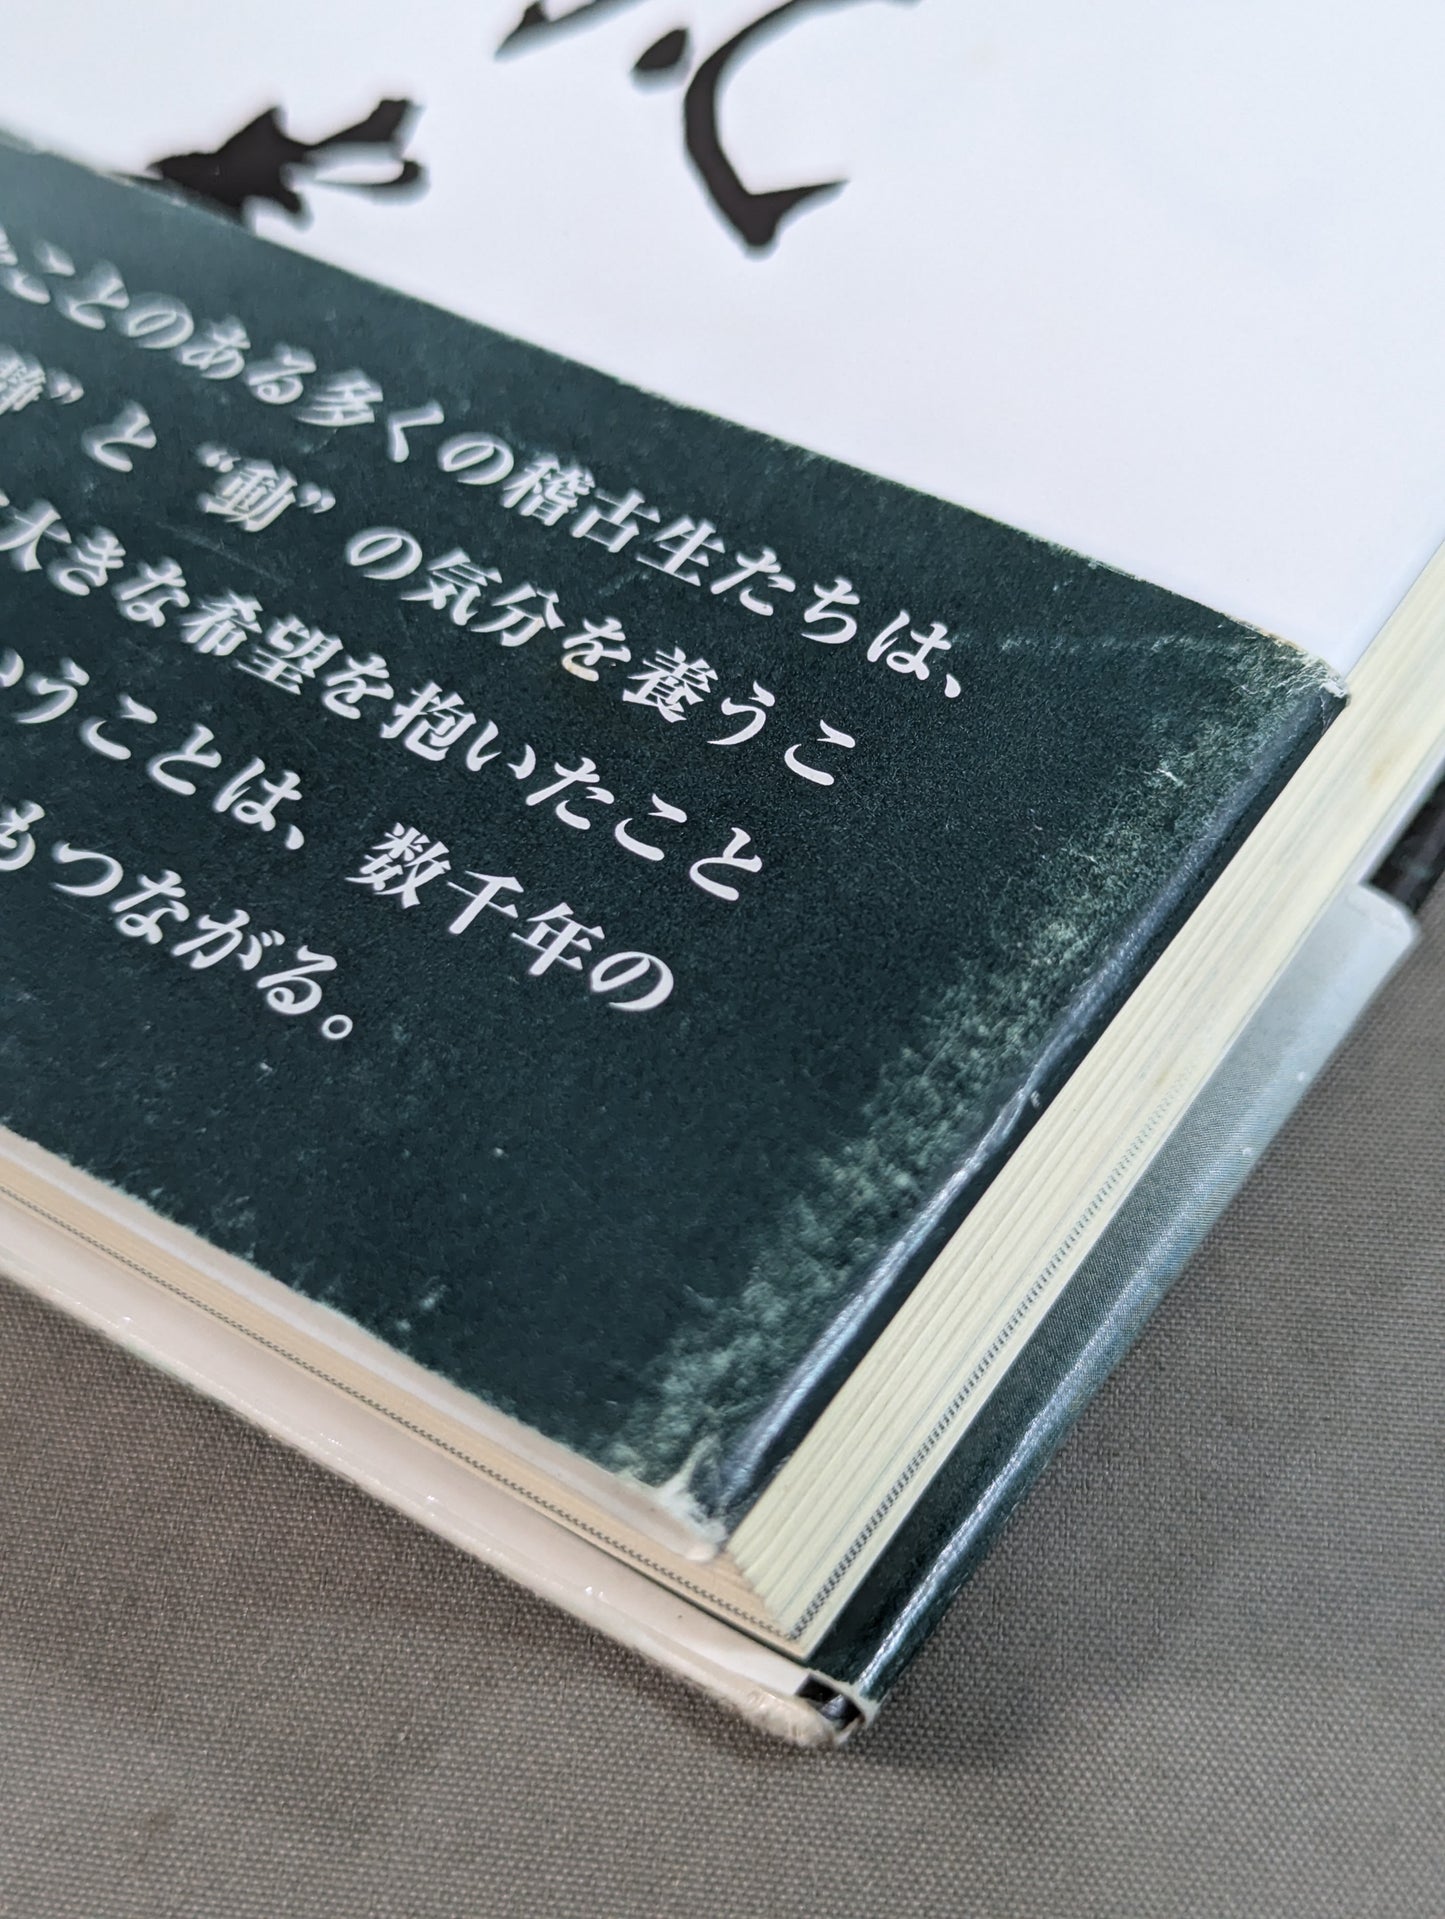 ことのある多くの稽古生たちは、
静”と“動”の気分を養うこ
大きな希望を抱いたこと
いうことは、数千年の
もつながる。